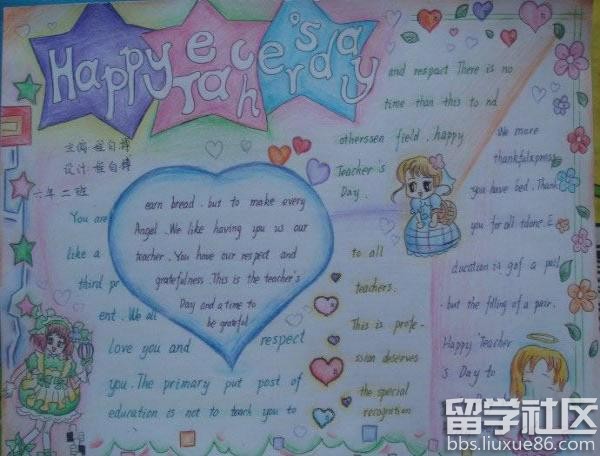 Happy Teacher's day
主编:崔自婷
设计:崔自婷
六年二班
You are
like a
third pr
ent. We all
love you and respect
you. The primary put post of
education is not to teach you to
earn bread. but to make every
Angel. We like having you us our
teacher. You have our respect and
gratefulness. This is the teacher's
Day and a time to
be grateful
and respart There is no
time than this to nd
otherssen field. happy
Teacher's
Day.
to all
teachers.
This is profe-
ssion deserves
the special
recognition
We more
thankfulxpress
you have bed. Thank
you for all tdone. E
ducation is gof a pail
but the filling of a pair.
Happy Teacher
's Day to
留学社区
bbs.liuxue86.com